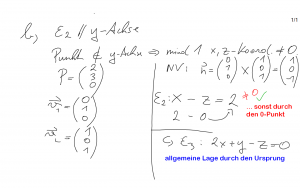 1/1
b) E₂ ∥ y-Achse
Punkt ∉ y-Achse ⇒ mind 1 x,z-Koord. ≠ 0
P = (2 3 0)
NV: n⃗ = (0 1 0) × (1 0 1) = (1 0 -1)
v⃗₁ = (0 1 0)
E₂: x - z = 2 ≠0 ✓
... sonst durch
den 0-Punkt
2 - 0
v⃗₂ = (1 0 1)
c) E₃: 2x + y - z = 0
allgemeine Lage durch den Ursprung